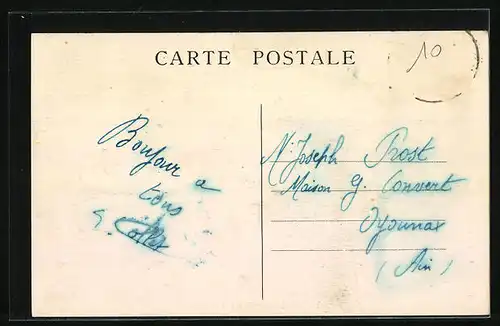 CARTE POSTALE
10
Bonjour a
tous
M. Joseph Prost
Maison G. Convert
Oyonnax
(Ain)